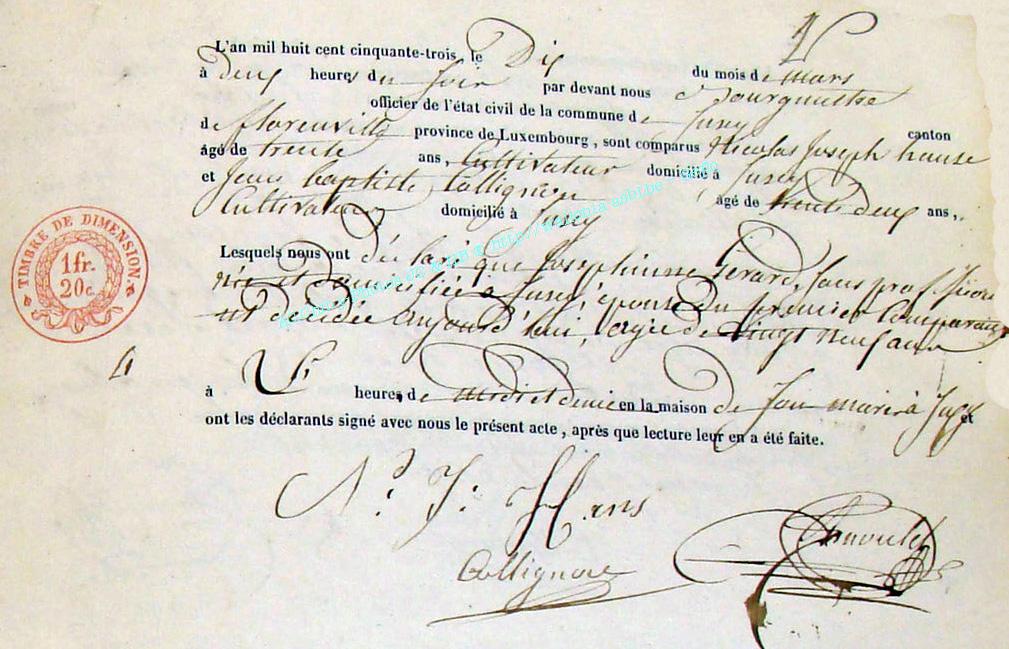 L'an mil huit cent cinquante-trois, le Dix du mois de Mars
à deux heures du Soir par devant nous Bourgmestre
officier de l'état civil de la commune de Jusey canton
de florenville province de Luxembourg, sont comparus Nicolas Joseph hanse
âgé de trente ans, Cultivateur domicilié à Jusey
et Jean baptiste Collignon âgé de trente deux ans,
Cultivateur domicilié à Jusey
Lesquels nous ont déclaré que Josephinne Gerard, Sans proffession
née et domiciliée à Jusey, épouse du premier Comparant
est décédée aujourd'hui, agée de vingt neuf ans
4
à heures de midi et demie en la maison de Son mari à Jusey et
ont les déclarants signé avec nous le présent acte, après que lecture leur en a été faite.
TIMBRE DE DIMENSION
1 fr.
20 c.
N. J. Hans
Collignon